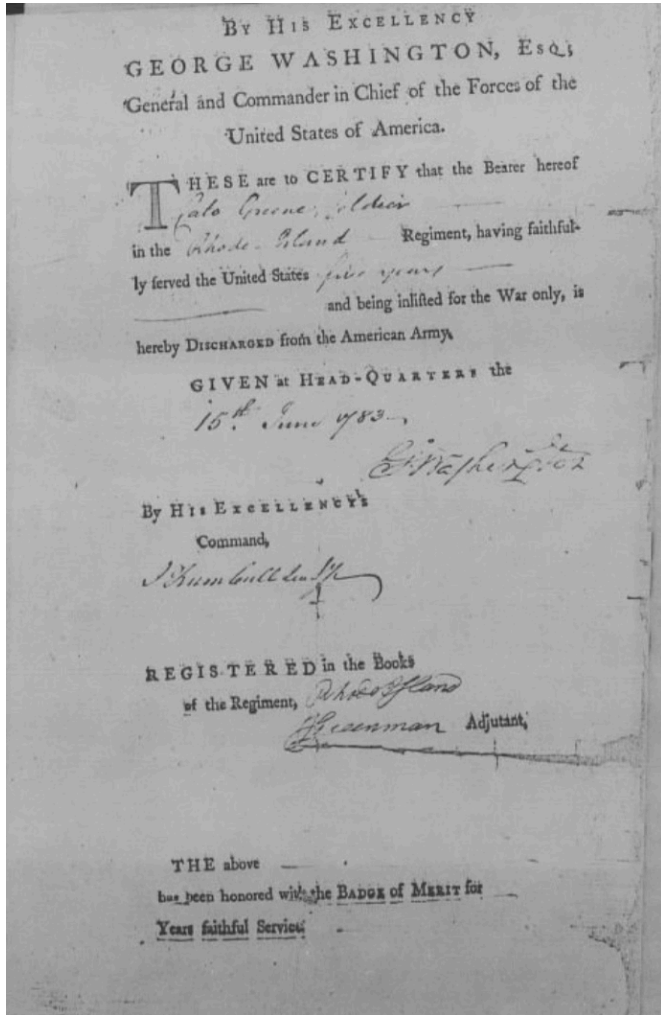 BY HIS EXCELLENCY
GEORGE WASHINGTON, Esq;
General and Commander in Chief of the Forces of the
United States of America.
THESE are to CERTIFY that the Bearer hereof
Cato Greene, soldier
in the Rhode-Island Regiment, having faithful-
ly served the United States five years
and being inlisted for the War only, is
hereby DISCHARGED from the American Army.
GIVEN at HEAD-QUARTERS the
15th June 1783
G Washington
By HIS EXCELLENCY'S
Command,
J Trumbull Jun Sy
REGISTERED in the Books
of the Regiment, Rhode Island
J Greenman Adjutant,
THE above
has been honored with the BADGE of MERIT for
Years faithful Service.